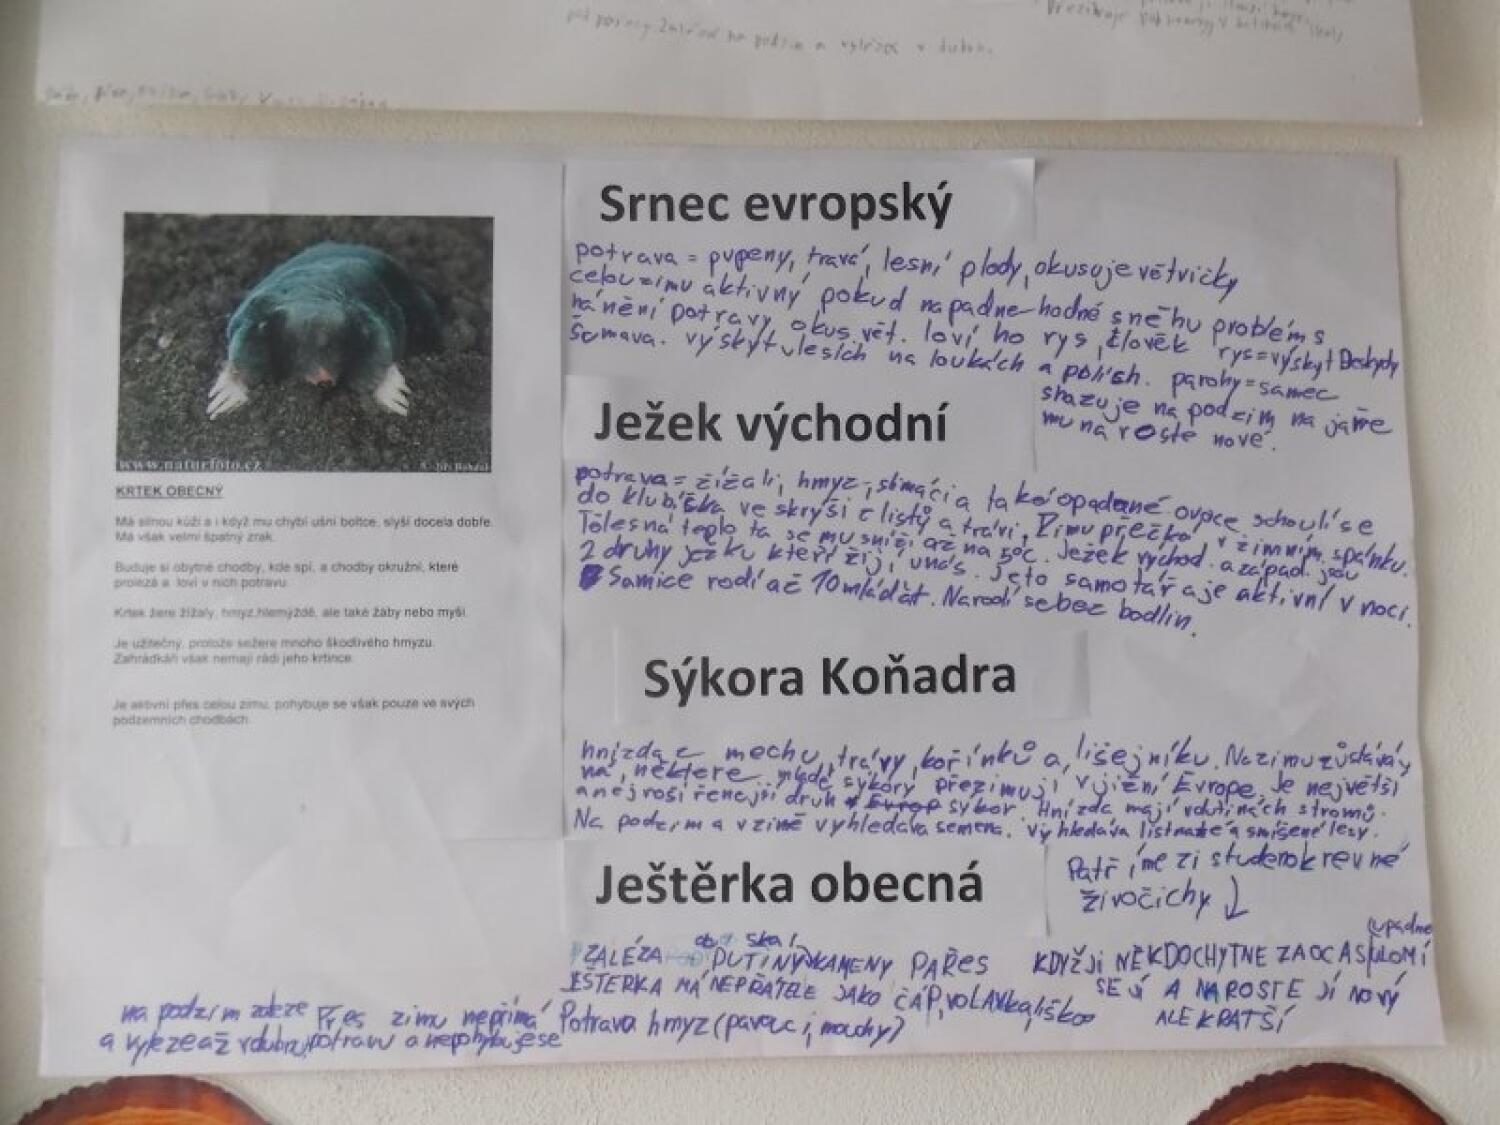 na podzim a vylézá v dubnu.
www.naturfoto.cz
KRTEK OBECNÝ
Má silnou kůži a i když mu chybí ušní boltce, slyší docela dobře.
Má však velmi špatný zrak.
Buduje si obytné chodby, kde spí, a chodby okružní, které
prolézá a loví v nich potravu.
Krtek žere žížaly, hmyz,hlemýždě, ale také žáby nebo myši.
Je užitečný, protože sežere mnoho škodlivého hmyzu.
Zahrádkáři však nemají rádi jeho krtince.
Je aktivní přes celou zimu, pohybuje se však pouze ve svých
podzemních chodbách.
Srnec evropský
potrava = pupeny, travá, lesní plody, okusuje větvičky
celou zimu aktivný pokud napadne hodně sněhu problém s
háněni potravy, okus. vět. loví ho rys, člověk rys=výskyt Beskydy
Šumava. výskyt v lesích na loukách a polích. parohy=samec
shazuje na podzim na jaře
mu na roste nové.
Ježek východní
potrava = žížali, hmyz, slimáci a také opadané ovoce schoulí se
do klubíčka ve skrýši z listý a trávi, Zimu přečká v zimním spánku.
Tělesná teplota se mu sníží až na 5°C. Ježek východ. a západ. jsou
2 druhy ježku kteří žijí u nás. Je to samotář a je aktivní v noci.
Samice rodí až 10 mláďat. Narodí se bez bodlin.
Sýkora Koňadra
hnízda z mechu, trávy, kořínků a, lišejníku. Na zimu zůstává
ná, některe mladé sýkory přezimují v jižní Evrope. Je největší
a nejrošířenejší druh sýkor. Hnízda mají v dutinách stromů.
Na podzim a v zimě vyhledává semena. vyhledává listnaté a smíšené lesy.
Ještěrka obecná
Patří mezi studenokrevné
živočichy
ZALÉZA POD DUTINY KAMENY PAŘES
skal
KDYŽ JI NĚKDO CHYTNE ZA OCAS ULOMÍ
upadne
SE JÍ A NAROSTE JÍ NOVÝ
ALE KRATŠÍ
JEŠTERKA MÁ NEPŘÁTELE JAKO ČÁP, VOLAVka, liška
Potrava hmyz (pavouci, mouchy)
na podzim zaleze Přes zimu nepřímá
a vyleze až v dubnu, potravu a nepohybuje se